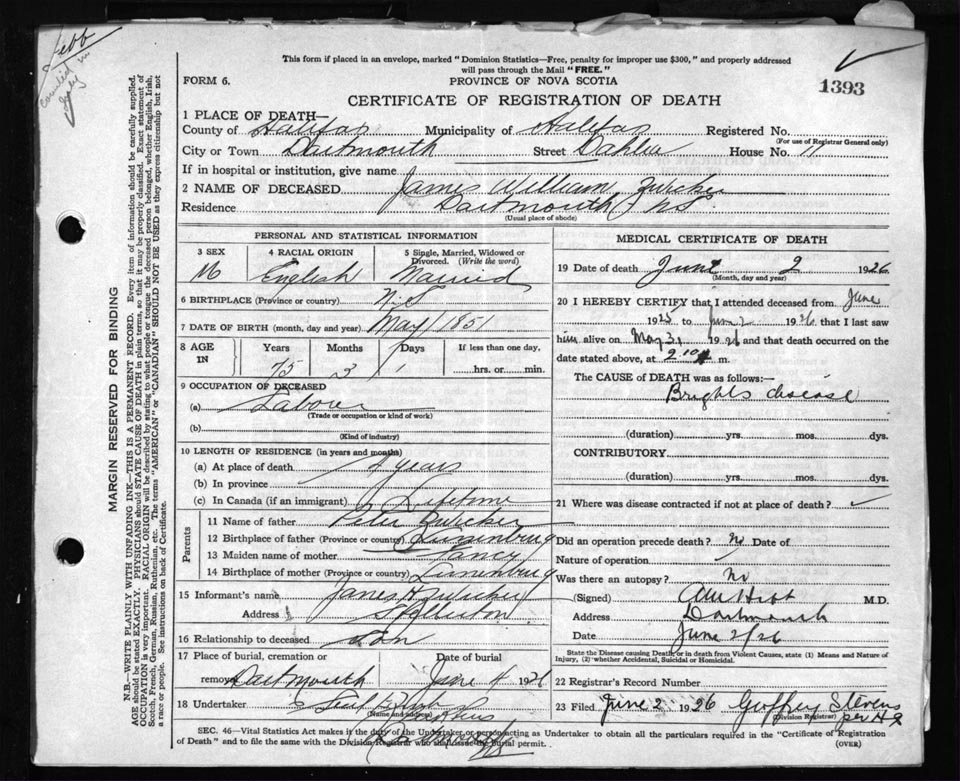 This form if placed in an envelope, marked "Dominion Statistics—Free, penalty for improper use $300," and properly addressed
will pass through the Mail "FREE."
FORM 6.
PROVINCE OF NOVA SCOTIA
1393
CERTIFICATE OF REGISTRATION OF DEATH
1 PLACE OF DEATH—
County of Halifax Municipality of Halifax Registered No.
(For use of Registrar General only)
City or Town Dartmouth Street Dahlia House No. 11
If in hospital or institution, give name
2 NAME OF DECEASED James William Zwicker
Residence Dartmouth, NS
(Usual place of abode)
PERSONAL AND STATISTICAL INFORMATION
3 SEX 4 RACIAL ORIGIN 5 Single, Married, Widowed or Divorced. (Write the word)
M English Married
6 BIRTHPLACE (Province or country) N.S
7 DATE OF BIRTH (month, day and year) May 1851
8 AGE IN Years Months Days If less than one day,
75 3 1 hrs. or min.
9 OCCUPATION OF DECEASED
(a) Laborer
(Trade or occupation or kind of work)
(b)
(Kind of industry)
10 LENGTH OF RESIDENCE (in years and months)
(a) At place of death years
(b) In province
(c) In Canada (if an immigrant) Lifetime
Parents
11 Name of father Peter Zwicker
12 Birthplace of father (Province or country) Lunenburg
13 Maiden name of mother Nancy
14 Birthplace of mother (Province or country) Lunenburg
15 Informant's name James H Zwicker
Address Stellerton
16 Relationship to deceased Son
17 Place of burial, cremation or Date of burial
removal Dartmouth June 4 1926
18 Undertaker
(Name and address)
MEDICAL CERTIFICATE OF DEATH
19 Date of death June 2 1926
(Month, day and year)
20 I HEREBY CERTIFY that I attended deceased from June
1925 to June 2 1926 that I last saw
him alive on May 31 1926 and that death occurred on the
date stated above, at 2.10 m.
The CAUSE OF DEATH was as follows:—
Brights disease
(duration) yrs. mos. dys.
CONTRIBUTORY
(duration) yrs. mos. dys.
21 Where was disease contracted if not at place of death?
Did an operation precede death? No Date of
Nature of operation
Was there an autopsy? No
(Signed) M.D.
Address Dartmouth
Date June 2/26
State the Disease causing Death or in death from Violent Causes, state (1) Means and Nature of
Injury, (2) whether Accidental, Suicidal or Homicidal.
22 Registrar's Record Number
23 Filed June 2 1926 Geoffrey Stevens
(Division Registrar) per
SEC. 46—Vital Statistics Act makes it the duty of the Undertaker or person acting as Undertaker to obtain all the particulars required in the "Certificate of Registration
of Death" and to file the same with the Division Registrar who shall issue the burial permit.
(OVER)
MARGIN RESERVED FOR BINDING
N.B.—WRITE PLAINLY WITH UNFADING INK—THIS IS A PERMANENT RECORD. Every item of information should be carefully supplied.
AGE should be stated EXACTLY. PHYSICIANS should STATE CAUSE OF DEATH in plain terms, so that it may be properly classified. Exact statement of
OCCUPATION is very important. RACIAL ORIGIN will be described by stating to what people or tongue the deceased person belonged, whether English, Irish,
Scotch, French, German, Russian, Ruthenian, etc. The terms "AMERICAN" or "CANADIAN" SHOULD NOT BE USED as they express citizenship but not
a race or people. See instructions on back of Certificate.